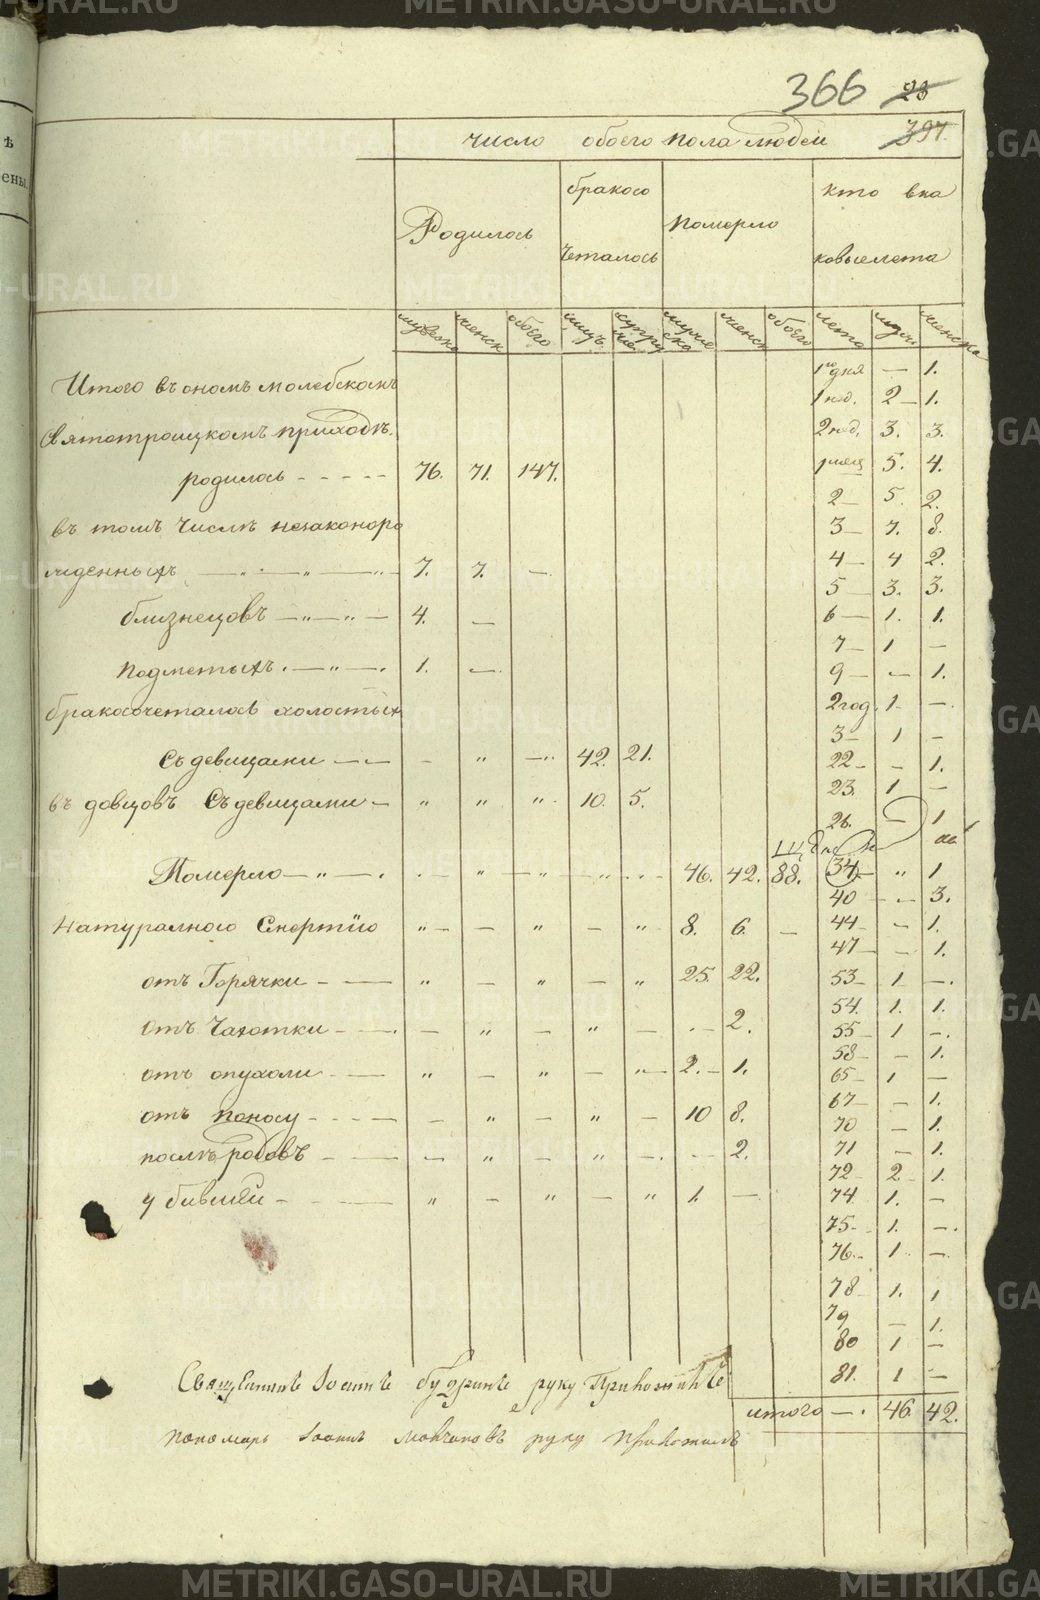 366 23
397.
число обоего пола людей
Родилось
бракосо
четалось
померло
кто вка
ковые лета
мужеска женск обоего лицъ супру
же муже
ска женск обоего лета муж. женска
1го дня — 1.
Итого въ ономъ молебскомъ
1 нед. 2 — 1.
Святотроицкомъ приходѣ.
2 нед. 3. 3.
1 мец 5. 4.
родилось - - - - - 76. 71. 147.
2 — 5. 2.
въ томъ числѣ незаконоро
3 — 7. 8.
4 — 4 2.
жденныхъ — „ — „ — 7. 7. —
5 — 3. 3.
близнецовъ — „ — „ — 4. —
6 — 1. 1.
7 — 1 —
подметыхъ. — „ — . 1. —
9 — — 1.
бракосочеталось холостых
2 год. 1. —
3 — 1 —
съ девицами — — - „ — „ 42. 21.
22 — - 1.
23. 1 —
въ довцовъ съ девицами — „ „ „ 10. 5.
26. — 1
Померло — „ — . - — „ — „ — „ - . . 46. 42. 88. 34 — „ 1
40 — - 3.
Натуралного Смертїю „ — — „ — „ 8. 6. — 44 — - 1.
47 — - 1.
отъ Горячки - — „ — „ — „ 25. 22. 53 — 1 — .
54. 1. 1.
отъ Чахотки - — . — „ — „ — - . 2. 55 — 1 — .
58 — - 1.
отъ опухоли - - — „ — „ — „ — 2. — 1. 65 — 1 —
67 — — 1.
отъ поносу - - - — — „ — „ — 10 8. 70 — 1.
послѣ родовъ - - — — „ — „ — . - - 2. 71 — 1.
72 — 2 — 1.
убившей - - — „ — „ — „ 1. — 74 1. —
75 — 1. — .
76 — 1 — .
78 — 1. 1
79 — 1.
80 1 —
81. 1 —
Священникъ Іоаннъ бугоринъ руку Приложилъ
итого — . 46. 42.
пономарь Іоаннъ руку приложилъ
METRIKI.GASO-URAL.RU